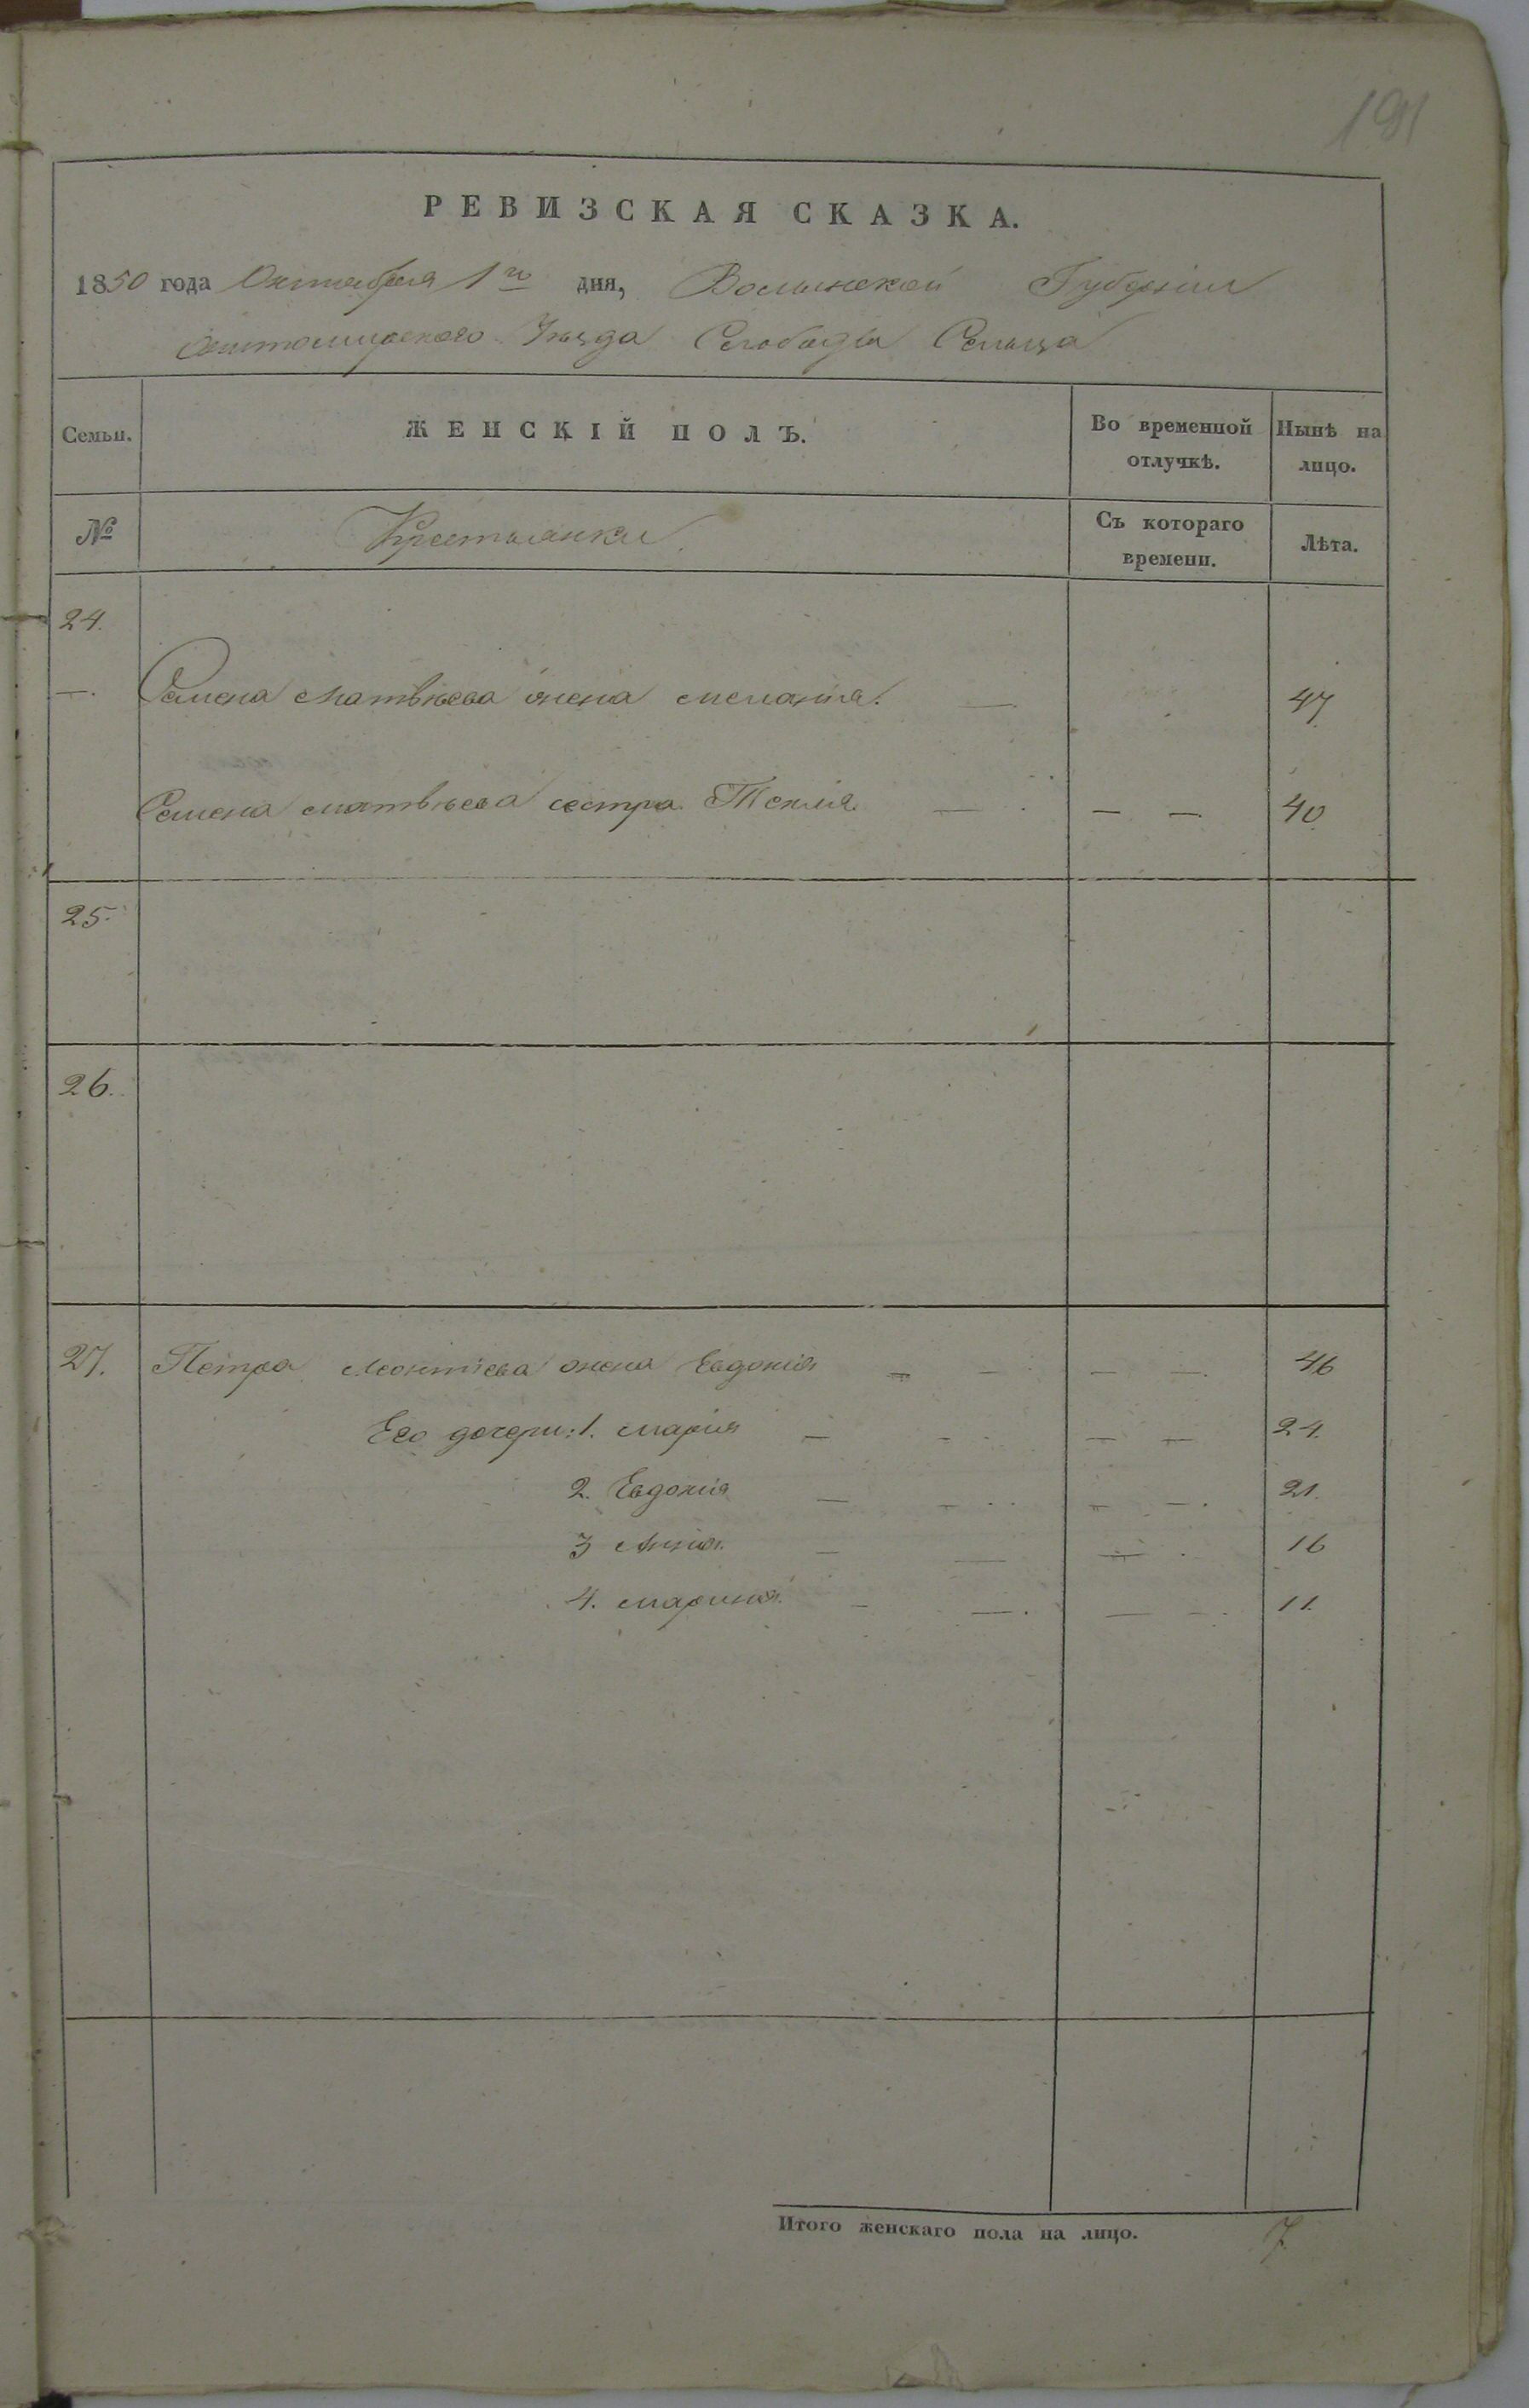 191
РЕВИЗСКАЯ СКАЗКА.
1850 года Октября 1го дня, Волынской Губерніи
Житомирского Уѣзда Слободы Сельца
Семьи. ЖЕНСКІЙ ПОЛЪ. Во временной отлучкѣ. Нынѣ на лицо.
№ Крестьянки. Съ котораго времени. Лѣта.
24.
—. Семена Матвѣева жена Меланія. — 47
Семена Матвѣева сестра Теклія. — — — 40
25.
26.
27. Петра Леонтіева жена Евдокія — — — — 46
Его дочери: 1. Марія — — — — 24.
2. Евдокія — — — — 21.
3 Анна. — — — 16
4. Марина. — — — — 11.
Итого женскаго пола на лицо. 7.